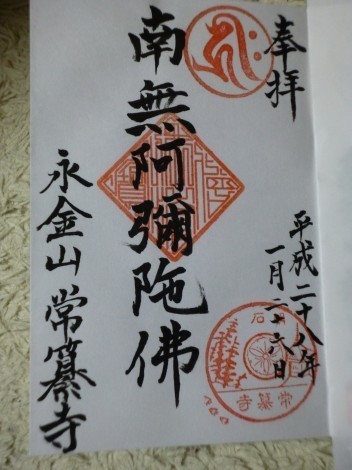 奉拝
平成二十八年
一月二十六日
南無阿彌陀佛
永金山 常纂寺
常纂寺